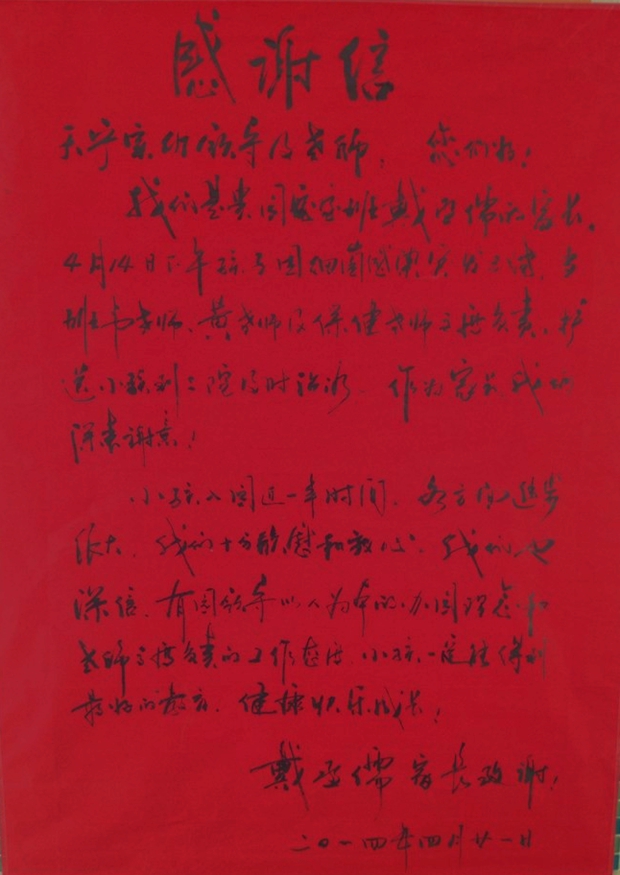 感谢信
天宁家幼领导及老师：您们好！
我们是贵园宝宝班戴丞儒的家长。
4月14日下午孩子因细菌感染突发
班主韦老师、黄老师及保健老师高度负责、护
送小孩到二院及时治疗。作为家长我们
深表谢意！
小孩入园近一年时间，各方面进步
很大，我们十分欣慰和放心。我们也
深信，有园领导以人为本的办园理念和
老师高度负责的工作态度，小孩一定能得到
最好的教育，健康快乐成长！
戴丞儒家长致谢！
二〇一四年四月廿一日